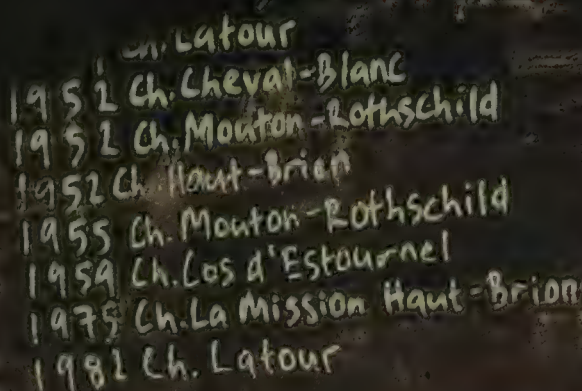 Ch. Latour
1952 Ch. Cheval-Blanc
1952 Ch. Mouton-Rothschild
1952 Ch. Haut-Brion
1955 Ch. Mouton-Rothschild
1959 Ch. Cos d'Estournel
1975 Ch. La Mission Haut-Brion
1982 Ch. Latour